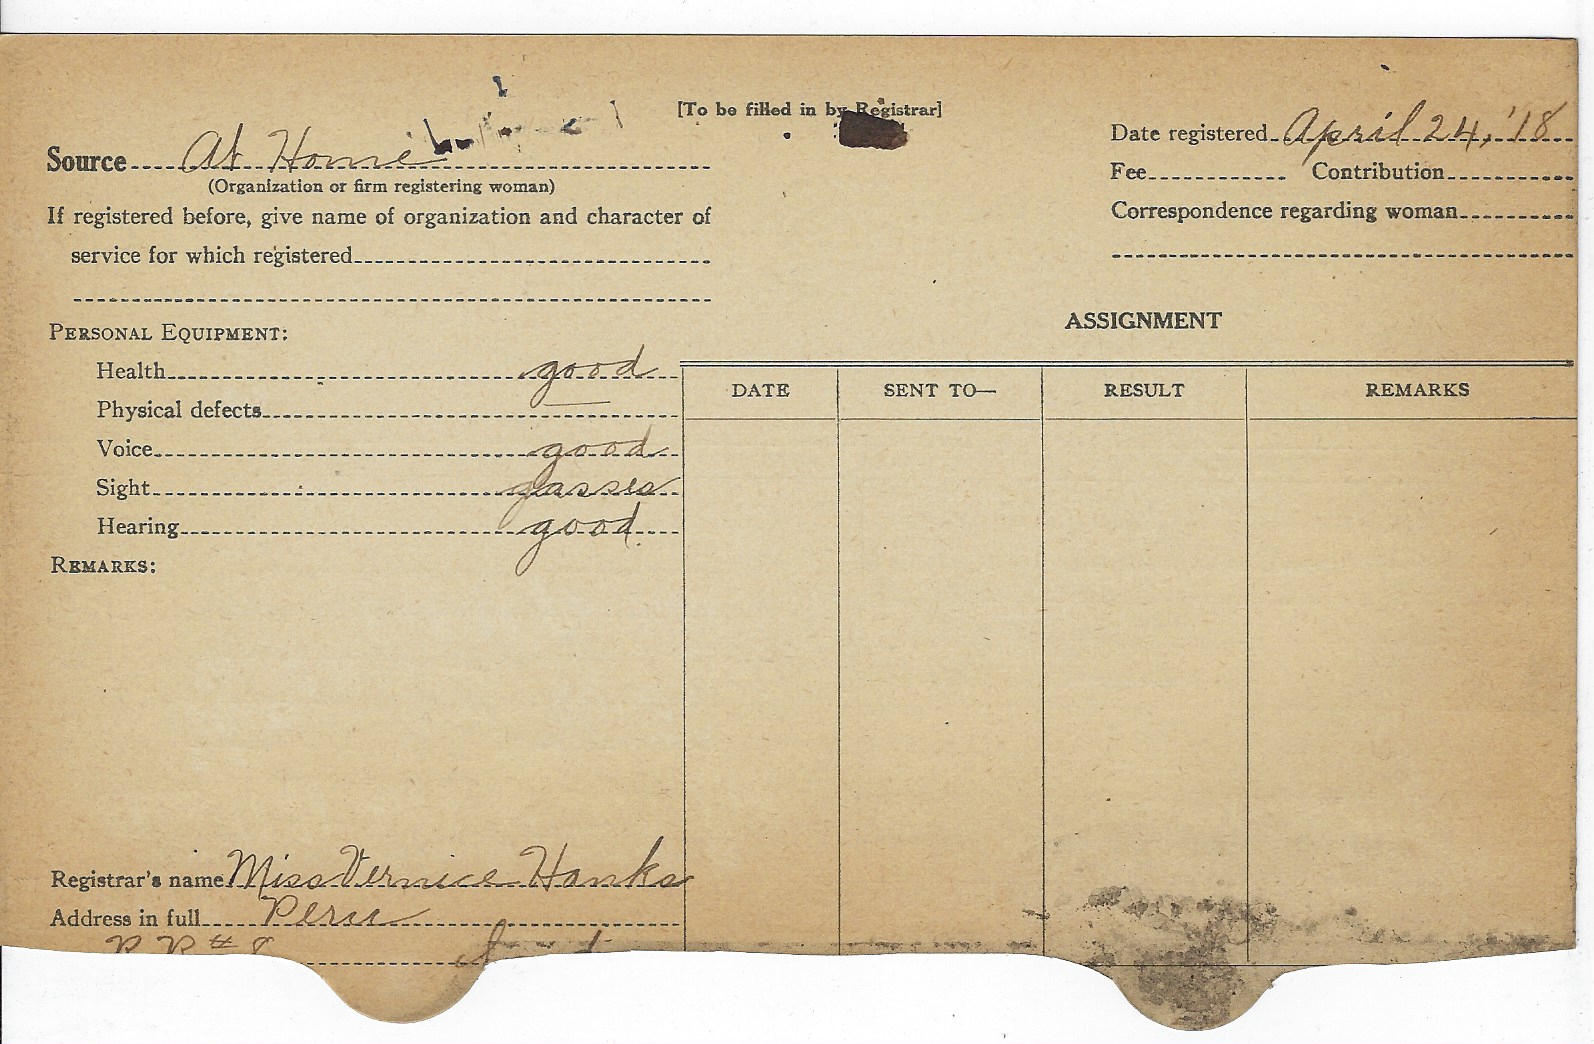 [To be filled in by Registrar]
Source At Home
(Organization or firm registering woman)
If registered before, give name of organization and character of
service for which registered
Date registered April 24, '18
Fee Contribution
Correspondence regarding woman
PERSONAL EQUIPMENT:
Health good
Physical defects —
Voice good
Sight glasses
Hearing good
REMARKS:
ASSIGNMENT
DATE SENT TO— RESULT REMARKS
Registrar's name Miss Vernice Hanks
Address in full Peru